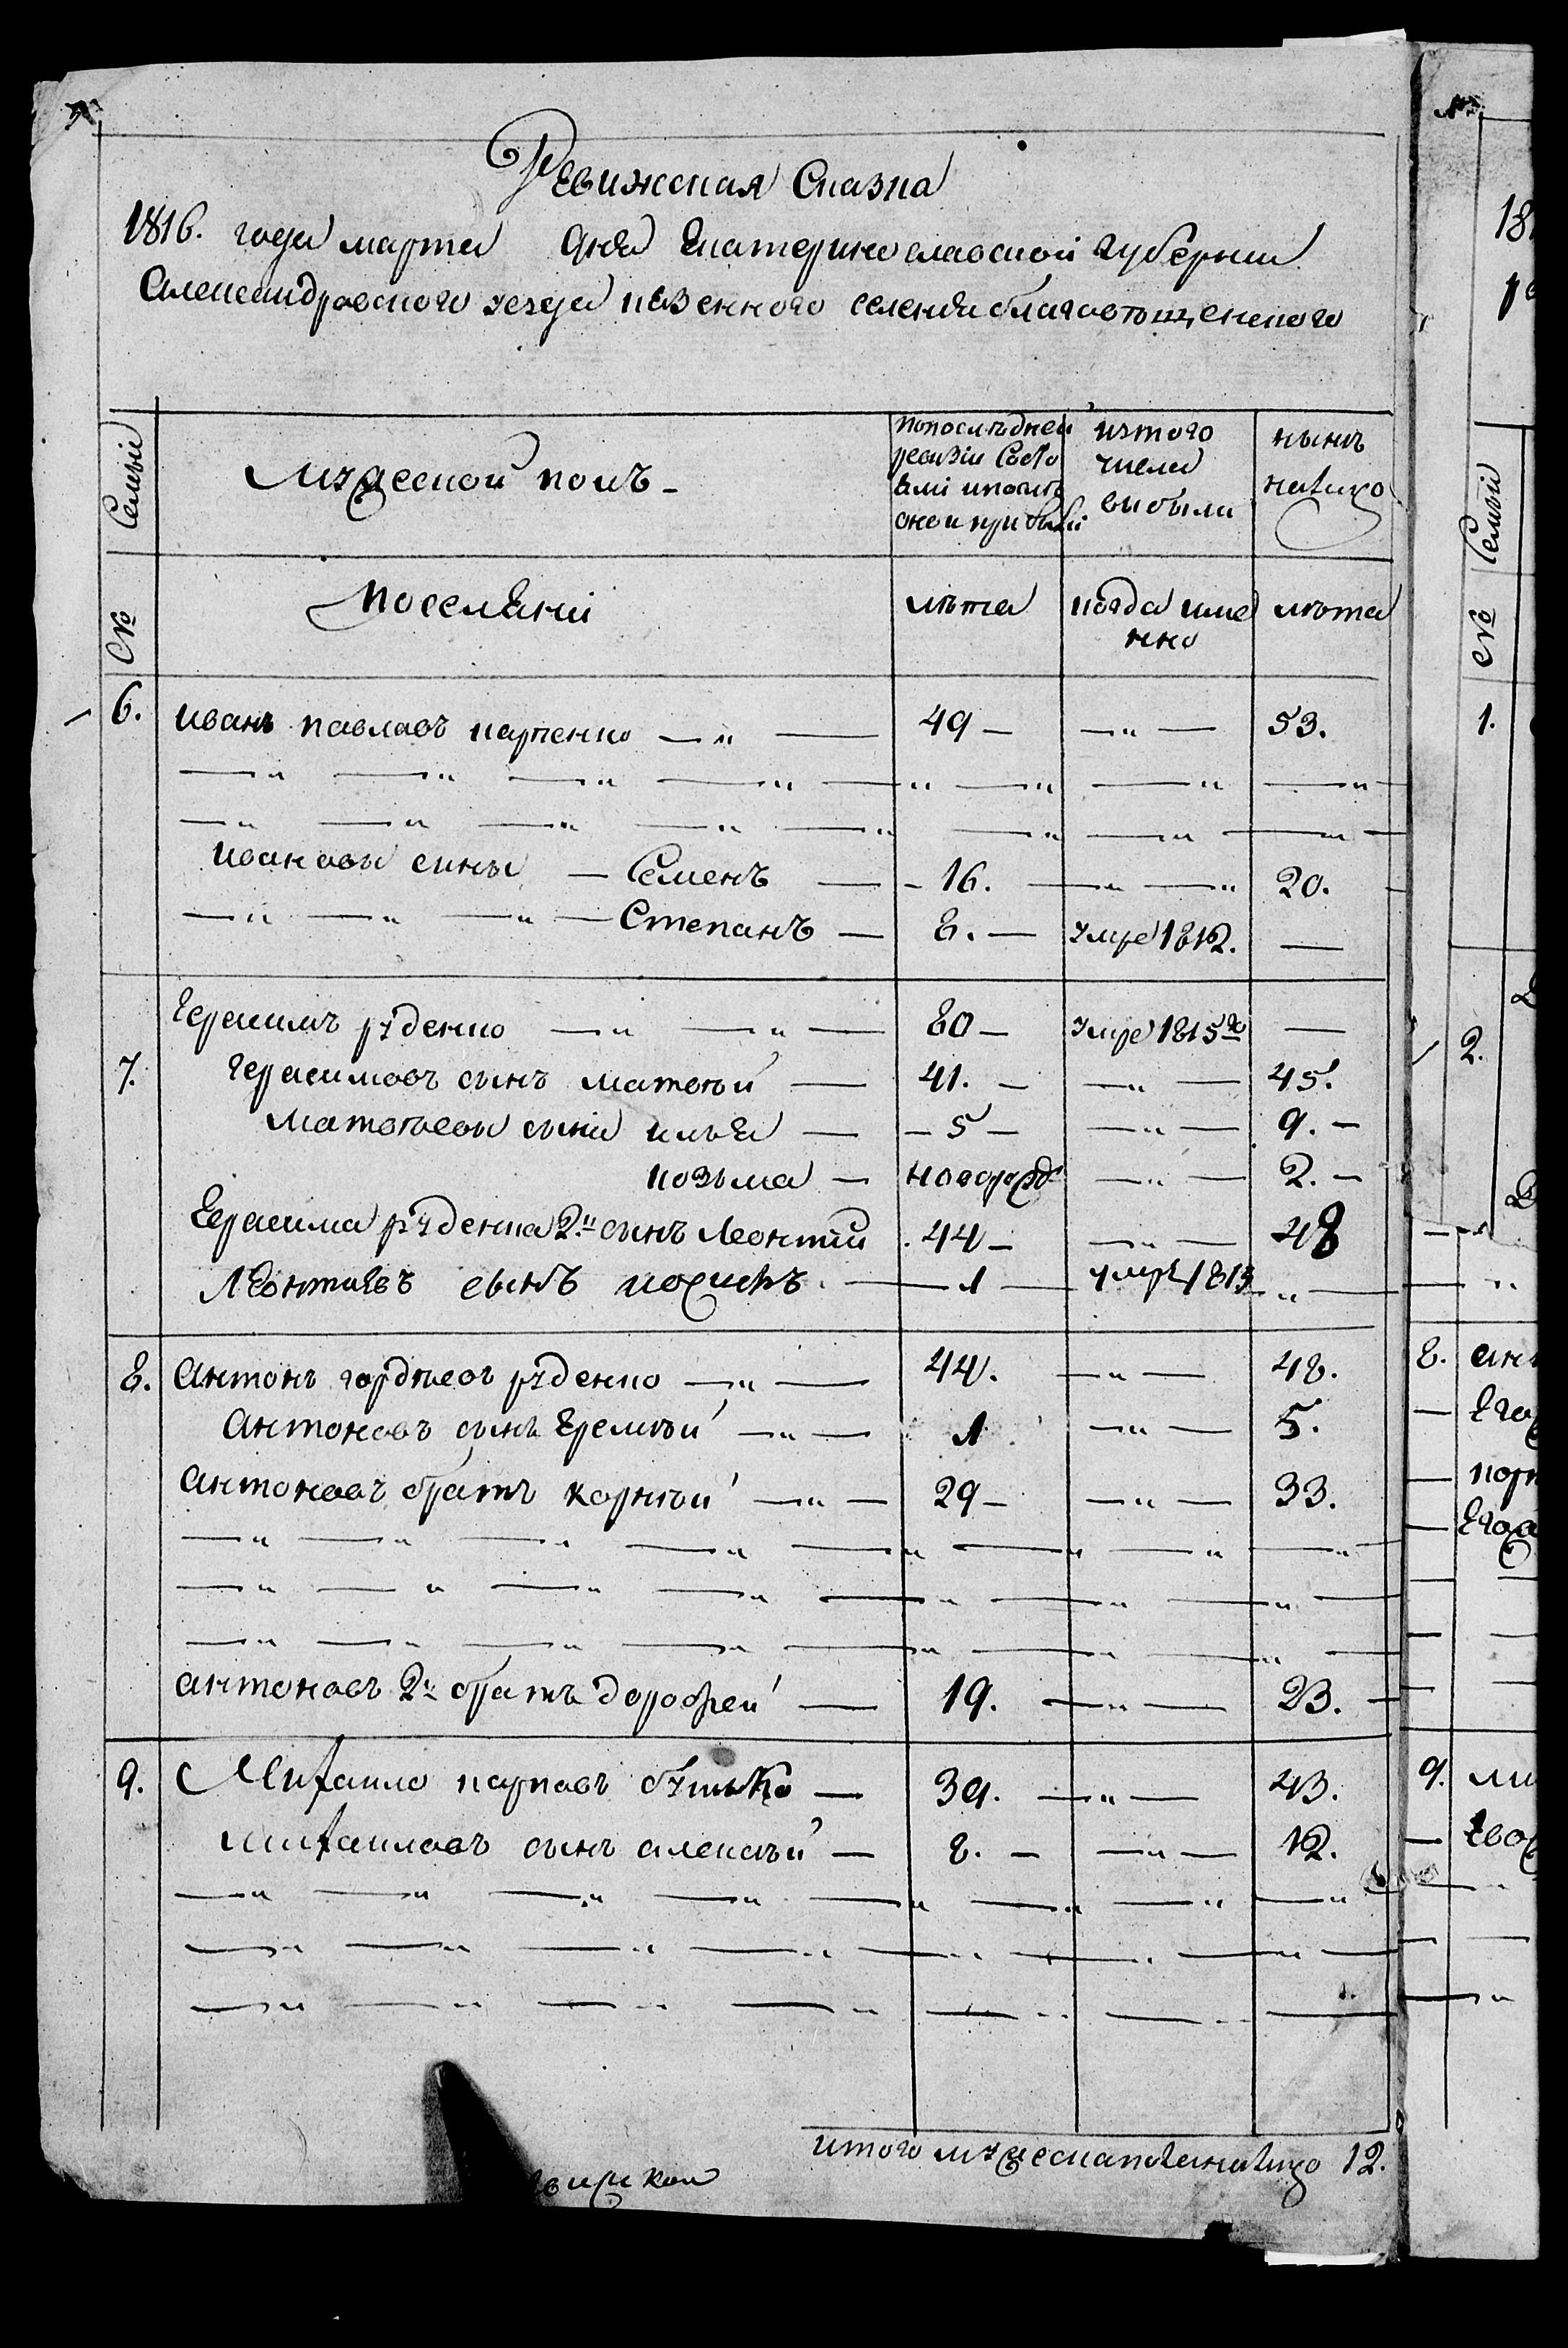 Ревижская Сказка
1816. года марта дня Екатеринославской губернии
Александровского уезда казенного селения благовѣщенского
Семьи
Мужеской полъ -
по последней ревизии состояло и после оной прибыли
из того числа выбыли
нынѣ налицо
№
Поселяни
лѣта
когда именно
лѣта
6. иванъ павловъ карпенко — 49 — 53.
ивановы сины — Семенъ — 16. — 20.
Степанъ — 8. — умре 1812. —
Герасимъ руденко — 80 — умре 1815го —
7. герасимовъ сынъ матвѣй — 41. — 45.
Матвѣевы сыни илья — 5 — 9. -
козьма — новорожд — 2. -
Герасима руденка 2й сынъ Леонтій 44 — 48
Леонтіевъ сынъ иосипъ — 1 — умре 1813 —
8. Антонъ гордѣевъ руденко — 44. — 48.
Антоновъ сынъ Еремѣй — 1 — 5.
Антоновъ братъ корнѣй — 29 — 33.
антоновъ 2й братъ дорофей — 19. — 23.
9. Михайло карповъ — 39. — 43.
михайловъ сынъ алексѣй — 8. — 12.
итого мужеска пола налицо 12.
№
18
Семьи
№
1.
2.
8. ан
Его
корн
Его
9. ми
Ево